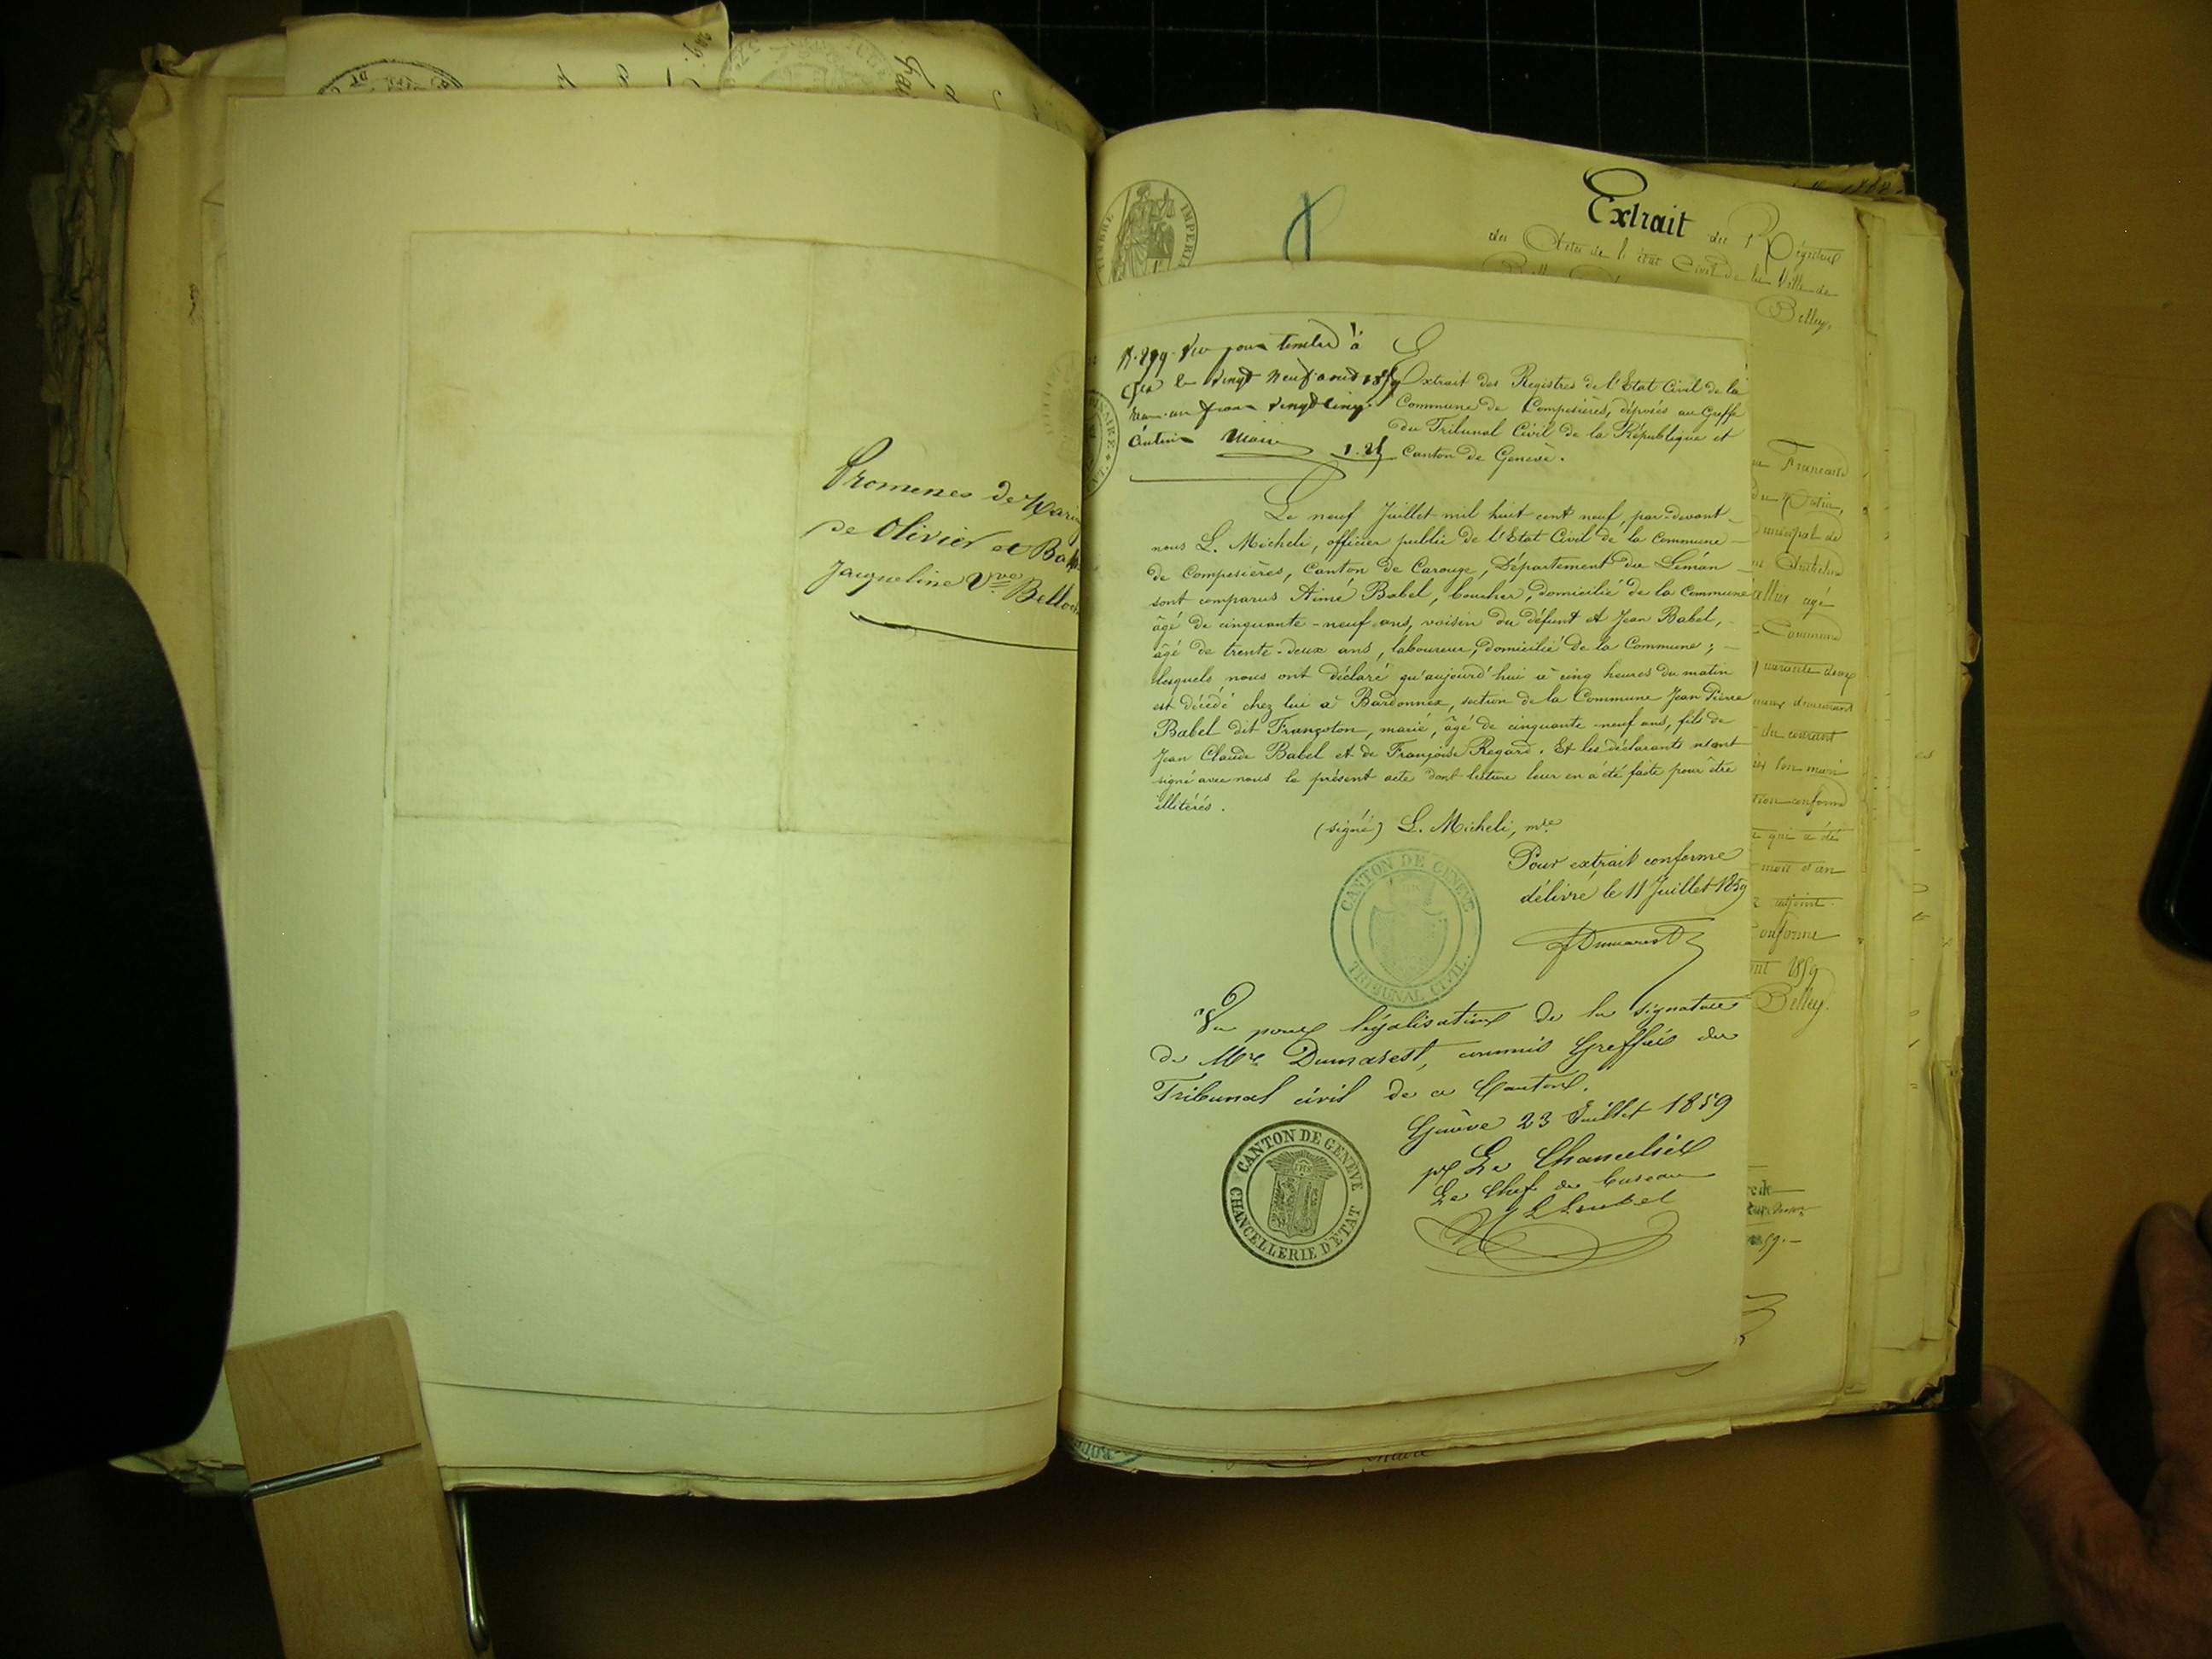 Promesses de Mari
de Olivier et Bab
Jacqueline Vve Bello
TIMBRE IMPERI
Extrait du Régistre
des Actes de l'état Civil de la Ville de
Belley.
N. 299. Vu pour timbre à
Gex le vingt neuf aoud 1859
un franc vingt cinq.
1.25
Extrait des Registres de l'Etat Civil de la
Commune de Compesières, déposés au Greffe
du Tribunal Civil de la République et
Canton de Genève.
Le neuf Juillet mil huit cent neuf, par-devant
nous L. Micheli, officier public de l'Etat Civil de la Commune
de Compesières, Canton de Carouge, Département du Léman
sont comparus Aimé Babel, boucher, domicilié de la Commune
âgé de cinquante-neuf ans, voisin du défunt et Jean Babel,
âgé de trente-deux ans, laboureur, domicilié de la Commune;
lesquels nous ont déclaré qu'aujourd'hui à cinq heures du matin
est décédé chez lui à Bardonnex, section de la Commune Jean Pierre
Babel dit Françoton, marié, âgé de cinquante-neuf ans, fils de
Jean Claude Babel et de Françoise Regard. Et les déclarants n'ont
signé avec nous le présent acte dont lecture leur en a été faite pour être
illitérés.
(signé) L. Micheli, mre
Pour extrait conforme
délivré le 11 Juillet 1859
Dumarest
CANTON DE GENEVE
TRIBUNAL CIVIL.
Vu pour légalisation de la signature
de Mr. Dumarest, commis Greffier du
Tribunal civil de ce Canton.
Genève 23 Juillet 1859
pr Le Chancelier
Le Chef de bureau
CANTON DE GENEVE
CHANCELLERIE D'ETAT